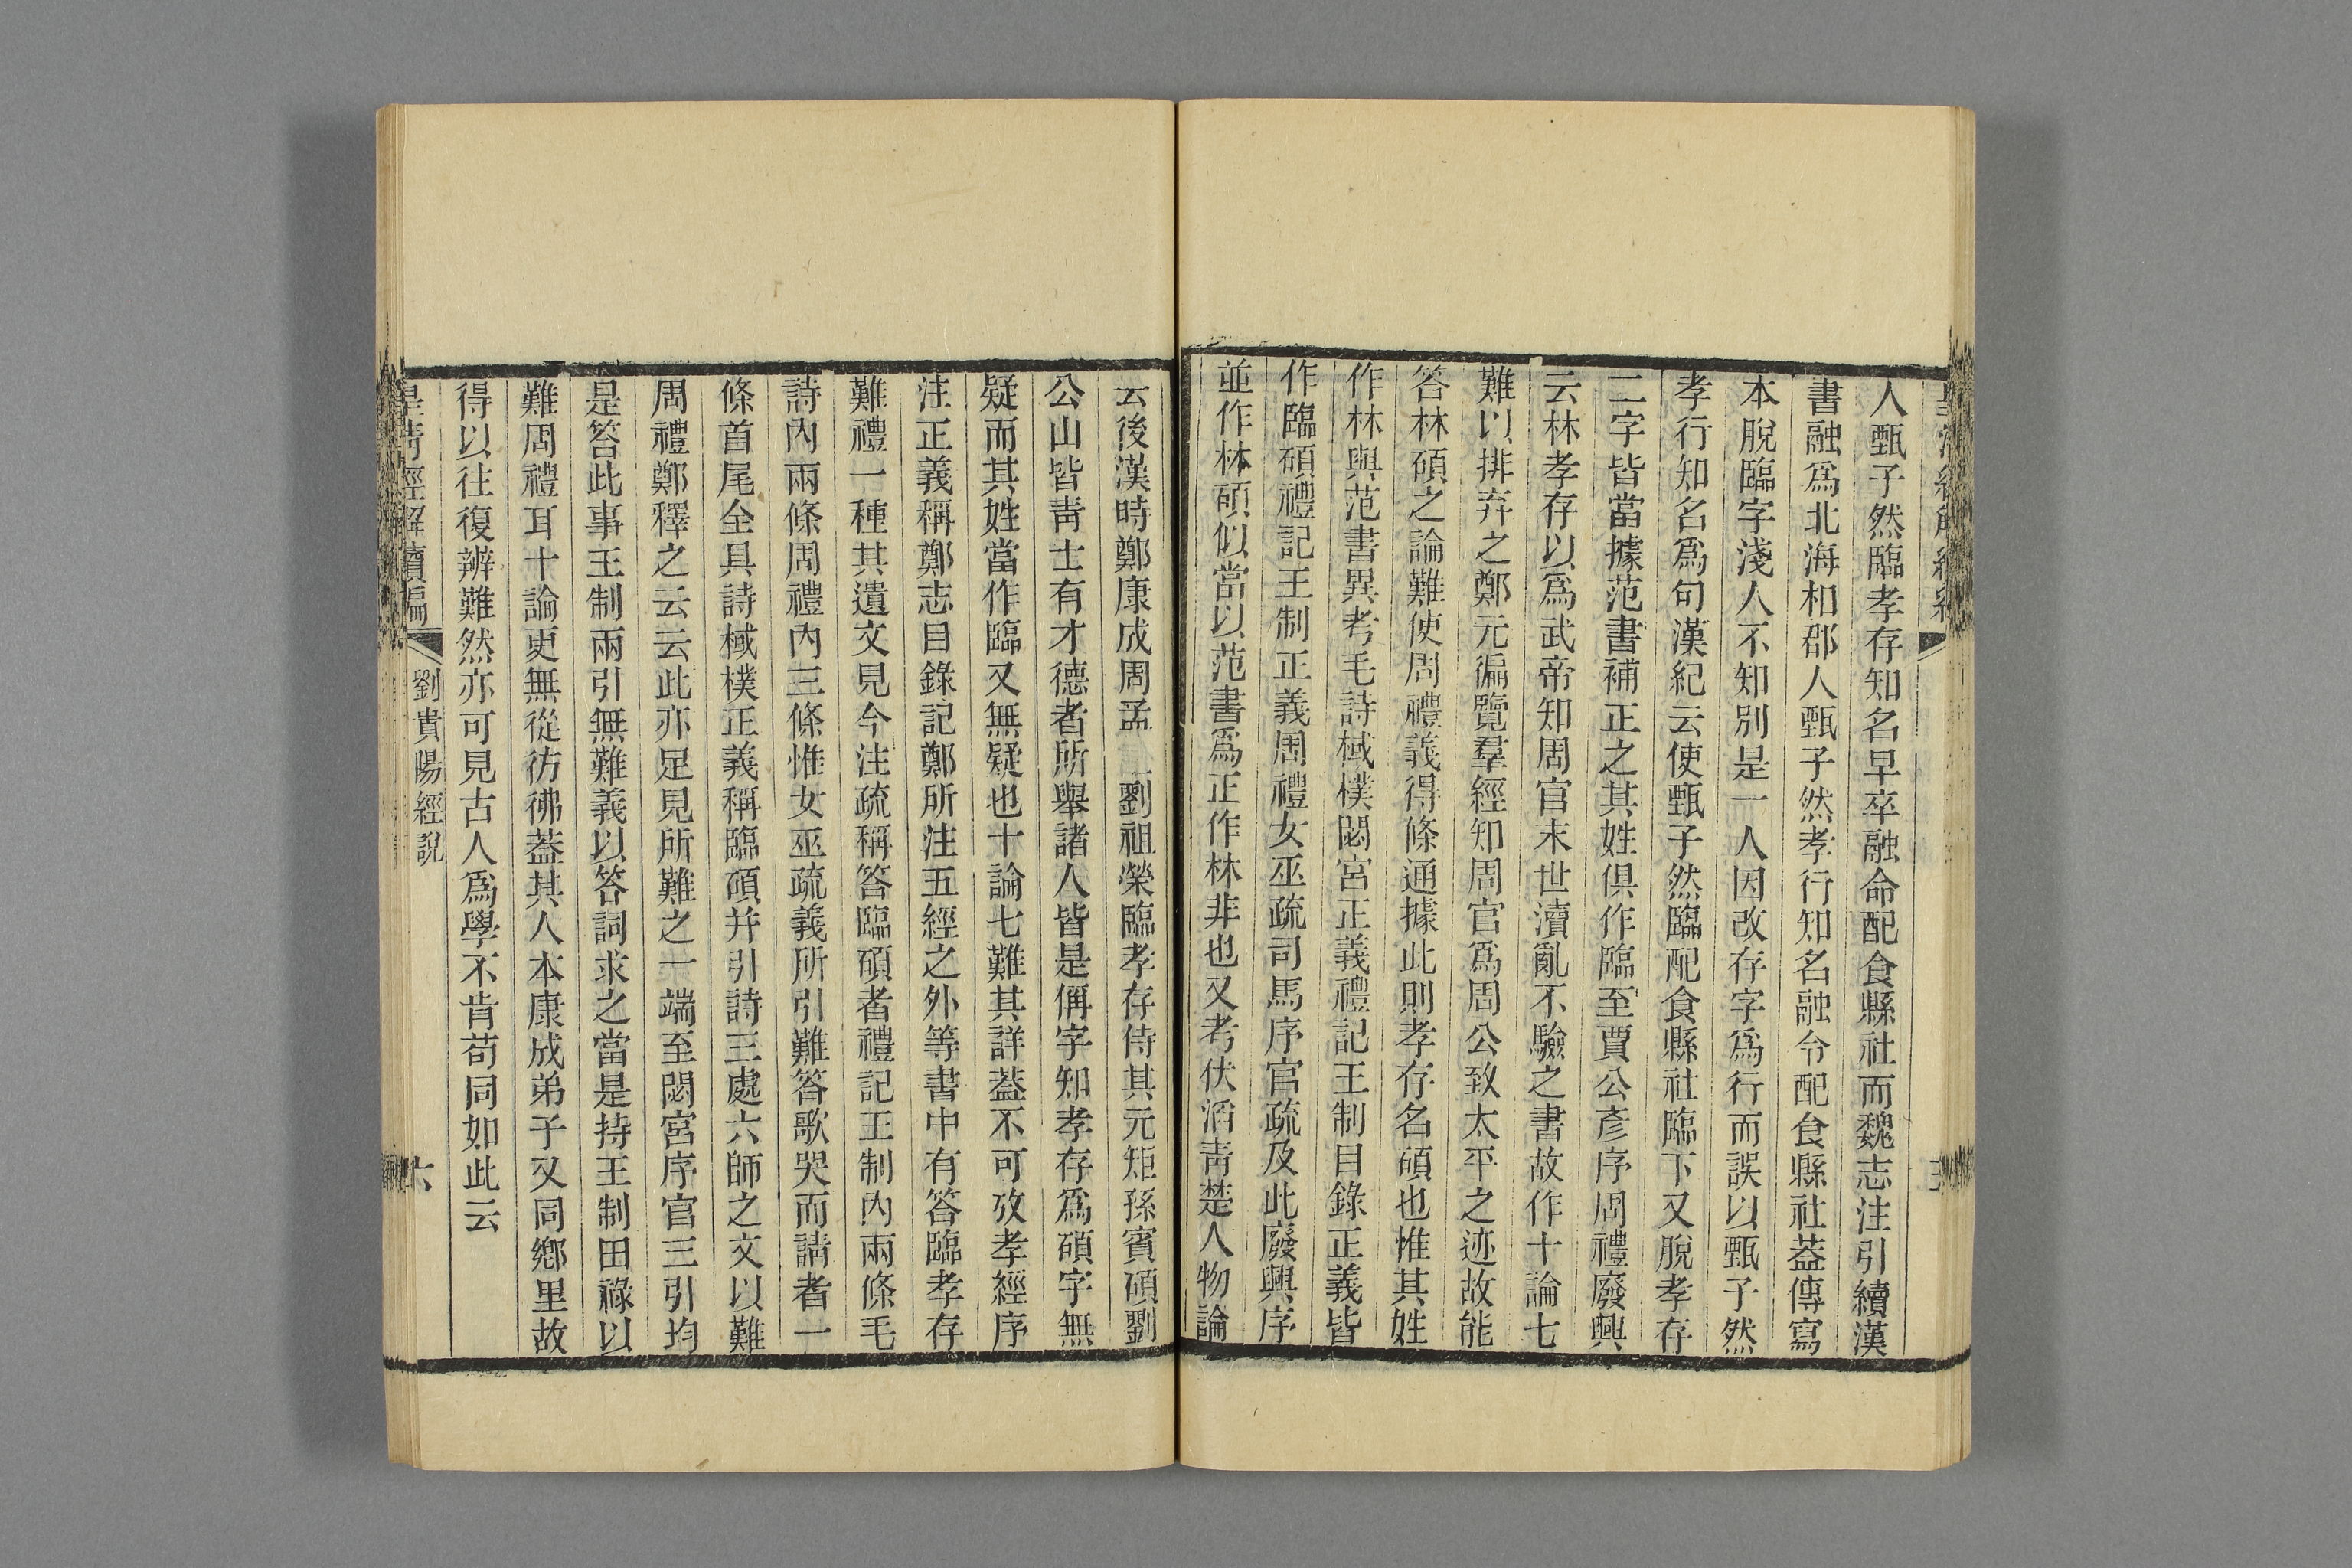 人甄子然臨孝存知名早卒融命配食縣社而魏志注引續漢
書融爲北海相郡人甄子然孝行知名融令配食縣社葢傳寫
本脫臨字淺人不知別是一人因改存字爲行而誤以甄子然
孝行知名爲句漢紀云使甄子然臨配食縣社臨下又脫孝存
二字皆當據范書補正之其姓俱作臨至賈公彥序周禮廢興
云林孝存以爲武帝知周官末世瀆亂不驗之書故作十論七
難以排弃之鄭元徧覽羣經知周官爲周公致太平之迹故能
答林碩之論難使周禮義得條通據此則孝存名碩也惟其姓
作林與范書異考毛詩棫樸閟宮正義禮記王制目錄正義皆
作臨碩禮記王制正義周禮女巫疏司馬序官疏及此廢興序
並作林碩似當以范書爲正作林非也又考伏滔青楚人物論
云後漢時鄭康成周孟 劉祖榮臨孝存侍其元矩孫賓碩劉
公山皆靑士有才德者所舉諸人皆是偁字知孝存爲碩字無
疑而其姓當作臨又無疑也十論七難其詳葢不可攷孝經序
注正義稱鄭志目錄記鄭所注五經之外等書中有答臨孝存
難禮一種其遺文見今注疏稱答臨碩者禮記王制內兩條毛
詩內兩條周禮內三條惟女巫疏義所引難答歌哭而請者一
條首尾全具詩棫樸正義稱臨碩并引詩三處六師之文以難
周禮鄭釋之云云此亦足見所難之一端至閟宮序官三引均
是答此事王制兩引無難義以答詞求之當是持王制田祿以
難周禮耳十論更無從彷彿葢其人本康成弟子又同鄉里故
得以往復辨難然亦可見古人爲學不肯苟同如此云
皇清經解續編 劉貴陽經說 六